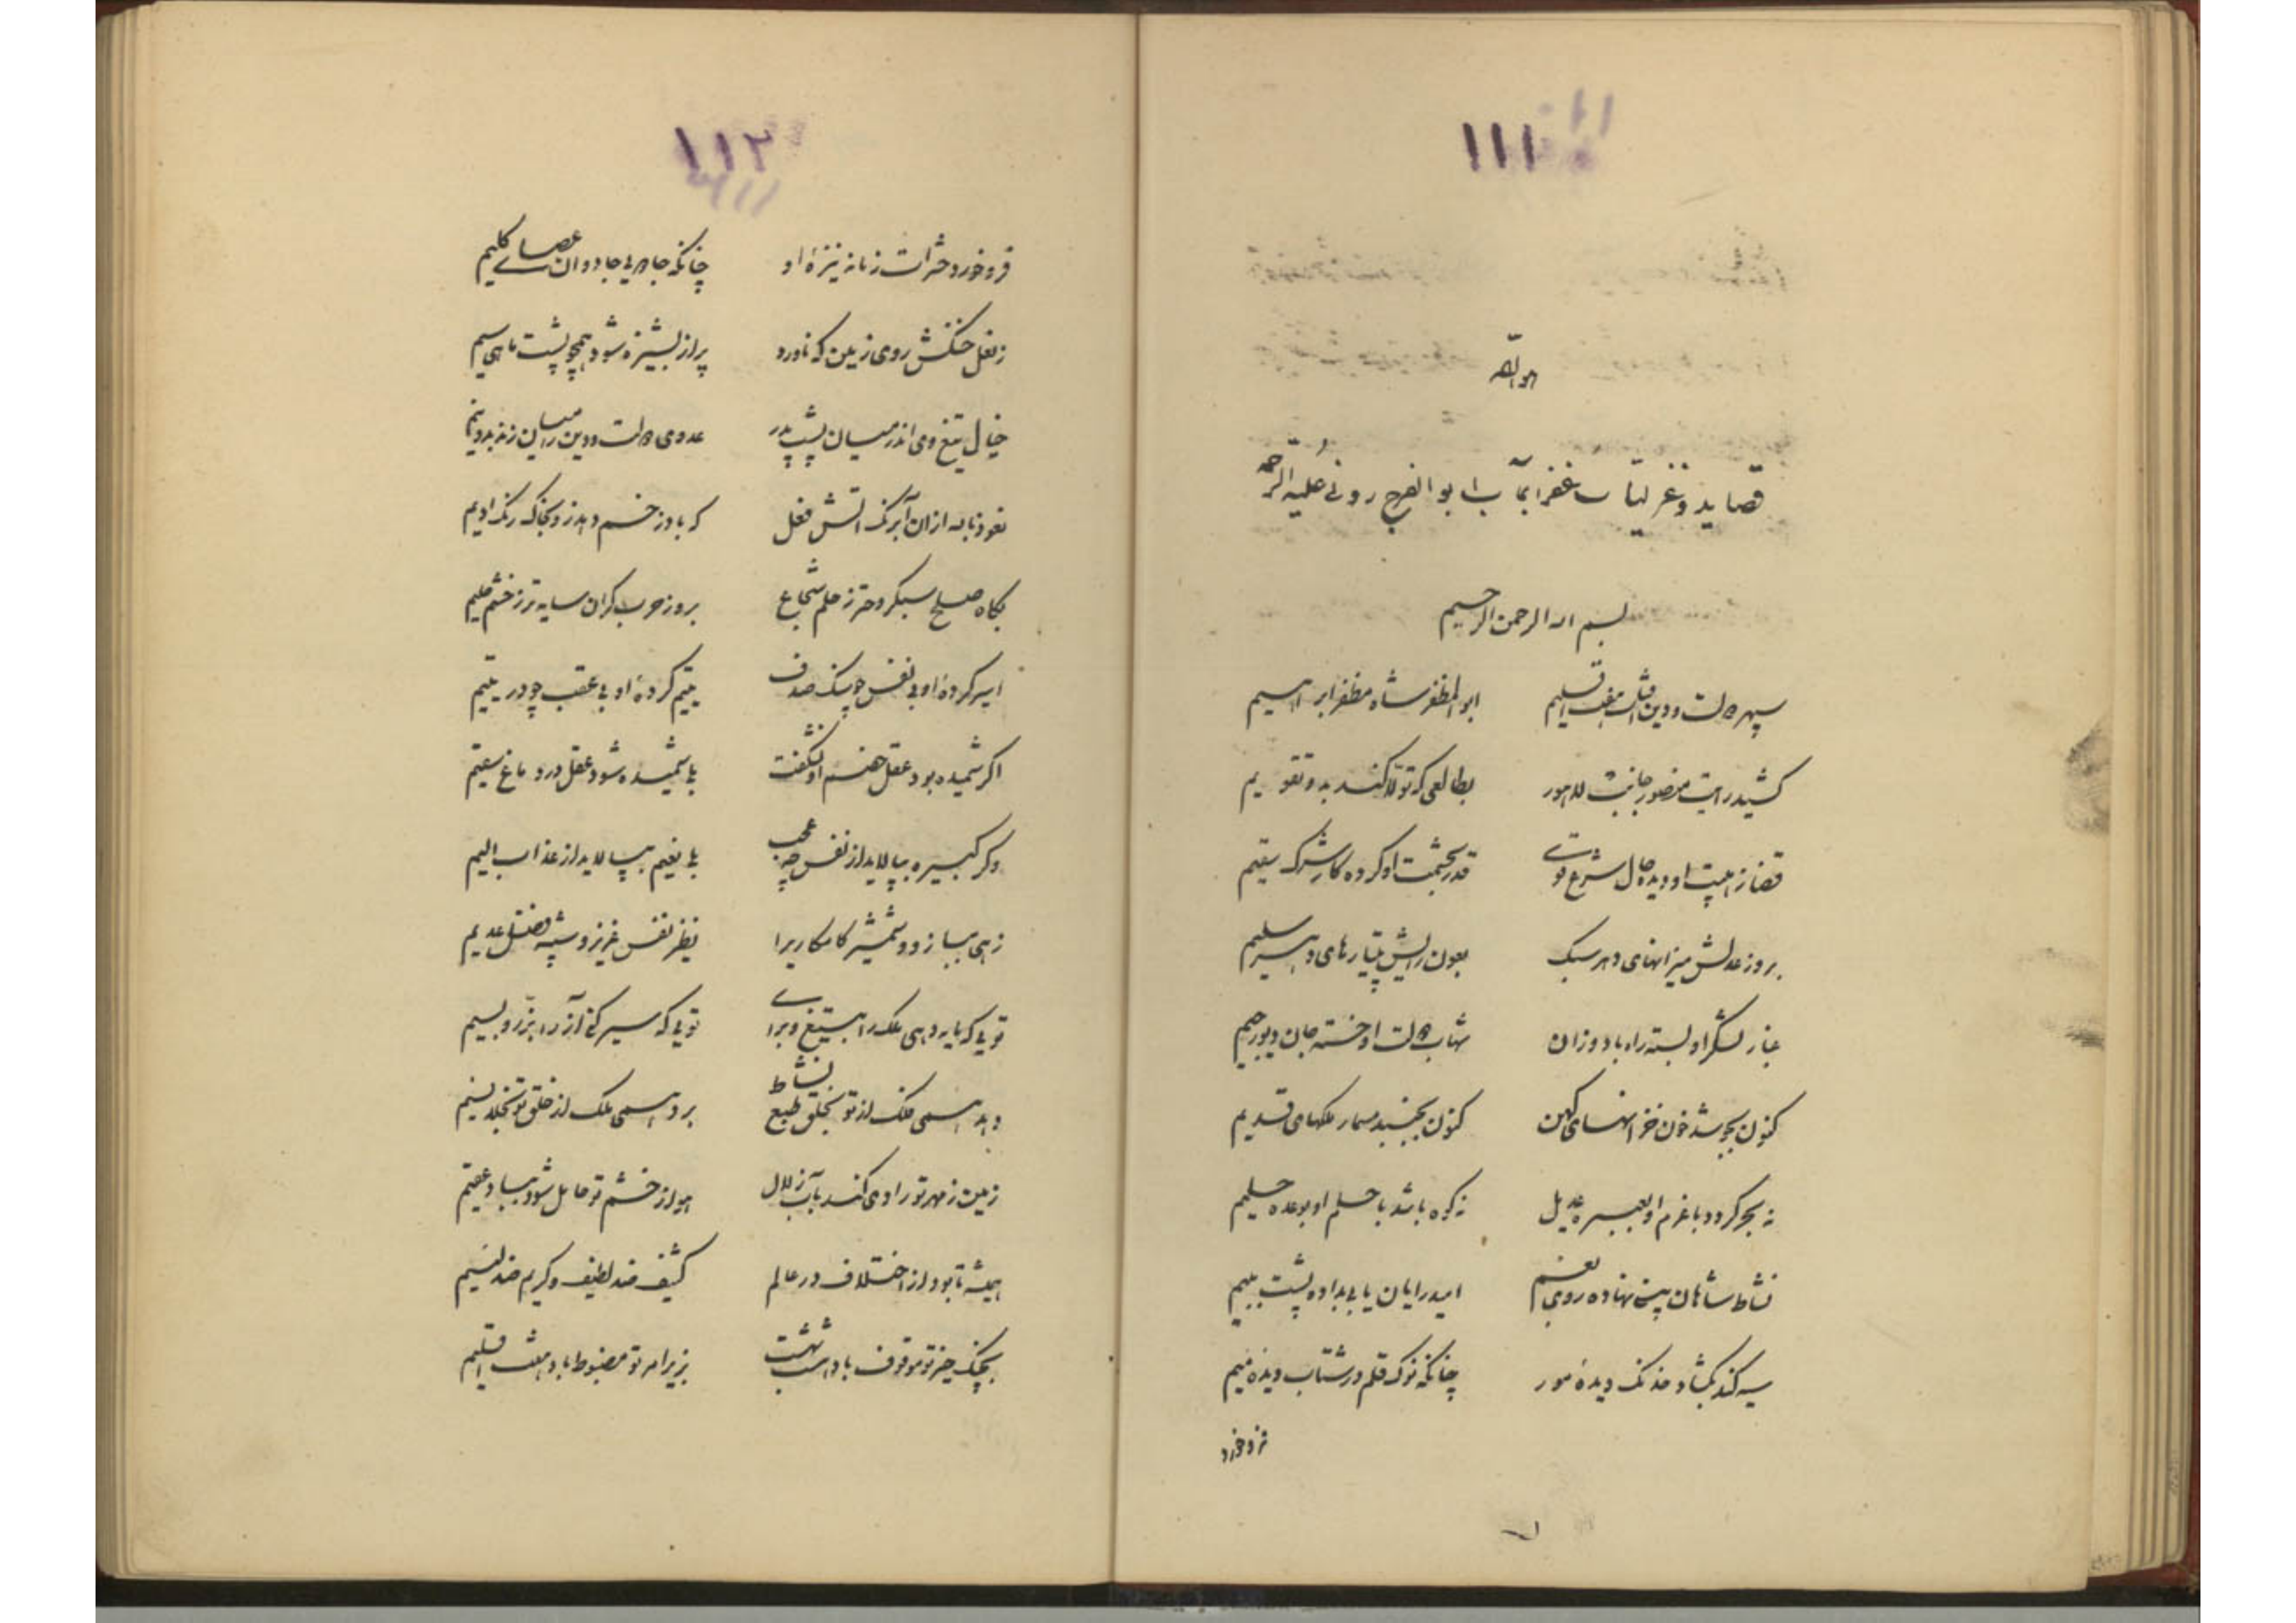 ۱۱۱
هو الله
قصاید و غزلیات غفرانمآب ابوالفرج رونی علیه الرحمه
بسم الله الرحمن الرحیم
سپهر دولت و دین هفت اقلیم ابوالمظفر شاه مظفر ابراهیم
کشید رایت منصور جانب لاهور بطالعی که تولا کند بدو تقویم
قضا ز هیبت او دیده حال شرع قوی قدر بحشمت او کرده کار شرک سقیم
بروز عدلش میزانهای دهر سبک بعون رایش بتیارهای دهر سلیم
غبار لشکر او بسته راه باد وزان شهاب دولت او خسته جان دیو رجیم
کنون بجوشد خون خزانهای کهن کنون بجنبد مسمار ملکهای قدیم
نه بحر گردد با عزم او بعبره عدیل نه کوه باشد با حلم او بوعده حلیم
نشاط شاهان پیش نهاده روی امید رایان یابی بداده پشت به بیم
سیه کند بگشاد خدنگ دیده مور چنانکه نوک قلم در شتاب دیده میم
فرو خورد
۱۱۲
فرو خورد حشرات زمانه نیزه او چنانکه جادوئی جادوان عصای کلیم
ز نعل خنگش روی زمین که ناورد پر از بشیزه شود همچو پشت ماهی سیم
خیال تیغ وی اندر میان پشت پدر عدوی دولت و دین را میان زند بدو نیم
نعوذ بالله از آن آبرنگ آتش فعل که باد زخم دهد زو بخاک رنگ ادیم
بگاه صلح سبکروحتر ز حلم شجاع بروز حرب گران سایه تر ز خشم حلیم
اسیر کرده او بی نفس چو سنگ صدف یتیم کرده او بی عقب چو در یتیم
اگر شمیده بود عقل خصم او نشگفت شمیده شود عقل در دماغ سقیم
وگر کبیره بپالاید از نفس چه عجب نعیم بپالاید از عذاب الیم
زهی ببازو و شمشیر کامکار ترا نظیر نفس عزیز و شبیه فضل عدیم
توئی که پایه دهی ملک را به تیغ و برای توئی که سیر کنی آز را بزر و بسیم
دهد همی فلک از تو بخلق طبع نشاط برد همی ملک از خلق تو بخلد نسیم
زمین ز مهر تو رادی کند بآب زلال هوا از خشم تو حامل شود بباد عقیم
همیشه تا بود از اختلاف در عالم کثیف ضد لطیف و کریم ضد لئیم
بچنگ حیز تو موقوف باد هشت بهشت بزیر امر تو مضبوط باد هفت اقلیم